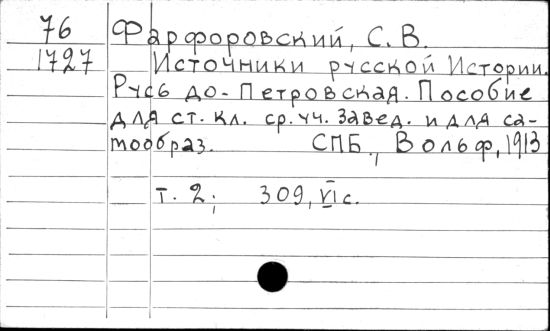 76 Фарфоровский, С. В.
1727 Источники русской Истории.
Русь до-Петровская. Пособие
для ст. кл. ср. уч. завед. и для са-
мообраз. СПБ., Вольф, 1913
т. 2; 309, VI с.